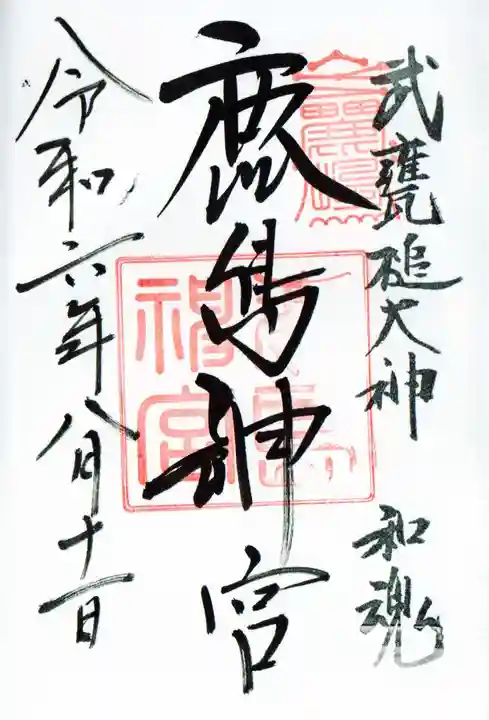 武甕槌大神 和魂
鹿島神宮
令和六年八月十一日
神宮